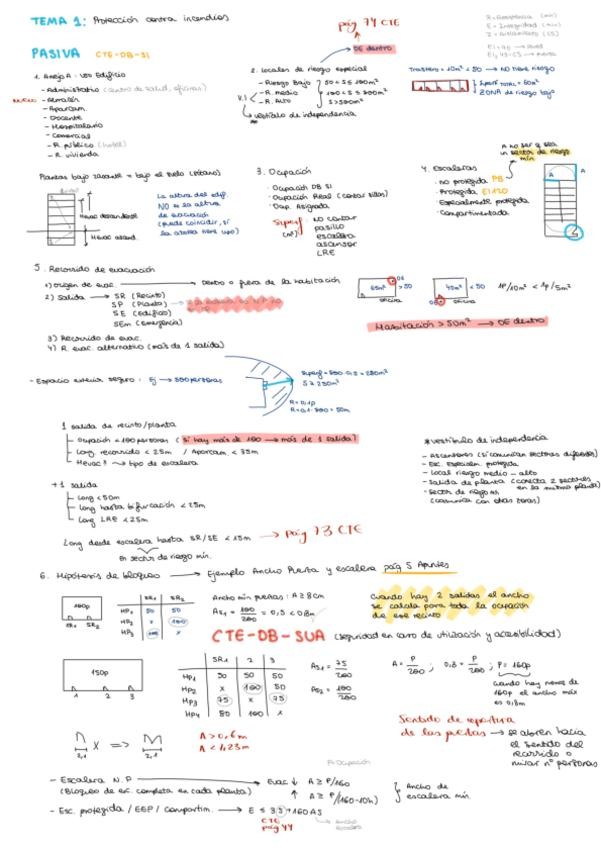 TEMA 1: Protección contra incendios
pág 74 CTE
R = Resistencia (min)
E = Integridad (min)
I = Aislamiento (CS)
PASIVA CTE-DB-SI
OE dentro
1. Anejo A: uso Edificio
- Administrativo (centro de salud, oficinas)
- Almacén
- Aparcam.
- Docente
- Hospitalario
- Comercial
- R. público (hotel)
- R. vivienda
2. Locales de riesgo especial
- Riesgo Bajo
- R. medio
- R. Alto
V.I
vestíbulo de independencia
Trastero = 10m² < 50 → NO tiene riesgo
Superf TOTAL = 60m²
ZONA de riesgo bajo
Plantas bajo rasante = bajo el suelo (sótano)
Hevac descendente
Hevac ascend.
La altura del edif.
NO es la altura
de evacuación
(puede coincidir, si
la última tiene uso)
3. Ocupación
- Ocupación DB SI
- Ocupación Real (contar sillas)
- Ocup. Asignada
Superf (m²)
NO contar
pasillo
escalera
ascensor
LRE
4. Escaleras
- no protegida PB
- Protegida EI120
- Especialmente protegida
- Compartimentada
A no ser q sea
un sector de riesgo
mín
A
A
5. Recorrido de evacuación
1) origen de evac. → Dentro o fuera de la habitación
2) Salida → SR (Recinto)
SP (Planta)
SE (Edificio)
SEm (Emergencia)
65m² > 50
oficina
OE
40m² < 50
oficina
OE
1p/10m² < 1p/5m²
Habitación > 50m² → OE dentro
3) Recorrido de evac.
4) R. evac. alternativo (más de 1 salida)
- Espacio exterior seguro: Ej → 500 personas
Superf = 500·0.5 = 250m²
S ≥ 250m²
R = 0.1p
R = 0.1·500 = 50m
1 salida de recinto/planta
- Ocupación < 100 personas (si hay más de 100 → más de 1 salida)
- Long. recorrido < 25m / Aparcam < 35m
- Hevac? → tipo de escalera
+1 salida
- Long < 50m
- Long hasta bifurcación < 25m
- Long LRE < 25m
*vestíbulo de independencia
- Ascensores (si comunican sectores diferentes)
- Esc. Especialm. protegida
- local riesgo medio - alto
- Salida de planta (conecta 2 sectores
en la misma planta)
- Sector de riesgo mín
(comunica con otras zonas)
Long desde escalera hasta SR/SE < 15m → pág 73 CTE
en sector de riesgo mín.
6. Hipótesis de bloqueo → Ejemplo Ancho Puerta y escalera pág 5 Apuntes
100p
SR1 SR2
SR1 SR2
HP1 50 50
HP2 x 100
HP3 100 x
Ancho mín puertas: A ≥ 8cm
As1 = 100/200 = 0,5 < 0,8m
Cuando hay 2 salidas el ancho
se calcula para toda la ocupación
de ese recinto
CTE-DB-SUA (seguridad en caso de utilización y accesibilidad)
150p
1 2 3
SR1 2 3
HP1 50 50 50
HP2 x 100 50
HP3 75 x 75
HP4 50 100 x
As1 = 75/200
As2 = 100/200
A = P/200 ; 0,8 = P/200 ; P = 160p
cuando hay menos de
160p el ancho máx
es 0,8m
A > 0,6m
A < 1,23m
Sentido de apertura
de las puertas → se abren hacia
el sentido del
recorrido o
mirar nº personas
P: Ocupación
- Escalera N.P → Evac ↓ A ≥ P/160
(Bloqueo de esc. completa en cada planta)
↑ A ≥ P/(160-10h)
Ancho de
escalera mín.
- Esc. protegida / EEP / Compartim. → E ≤ 3S + 160AS
CTE
pág 44